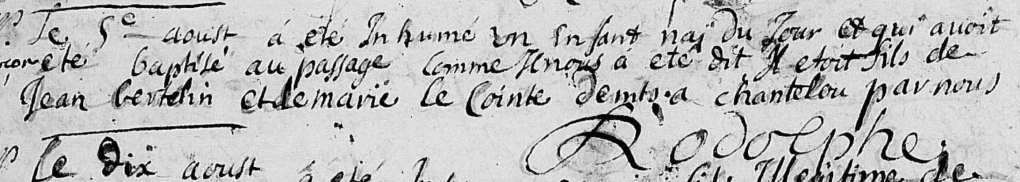 Le 5e aoust a été Inhumé un Enfant naÿ du Jour et qui avoit
eté baptisé au passage comme Il nous a eté dit Il etoit fils de
Jean bertelin et de marie le Cointe demts a chantelou par nous
Rodolphe
Le dix aoust a été